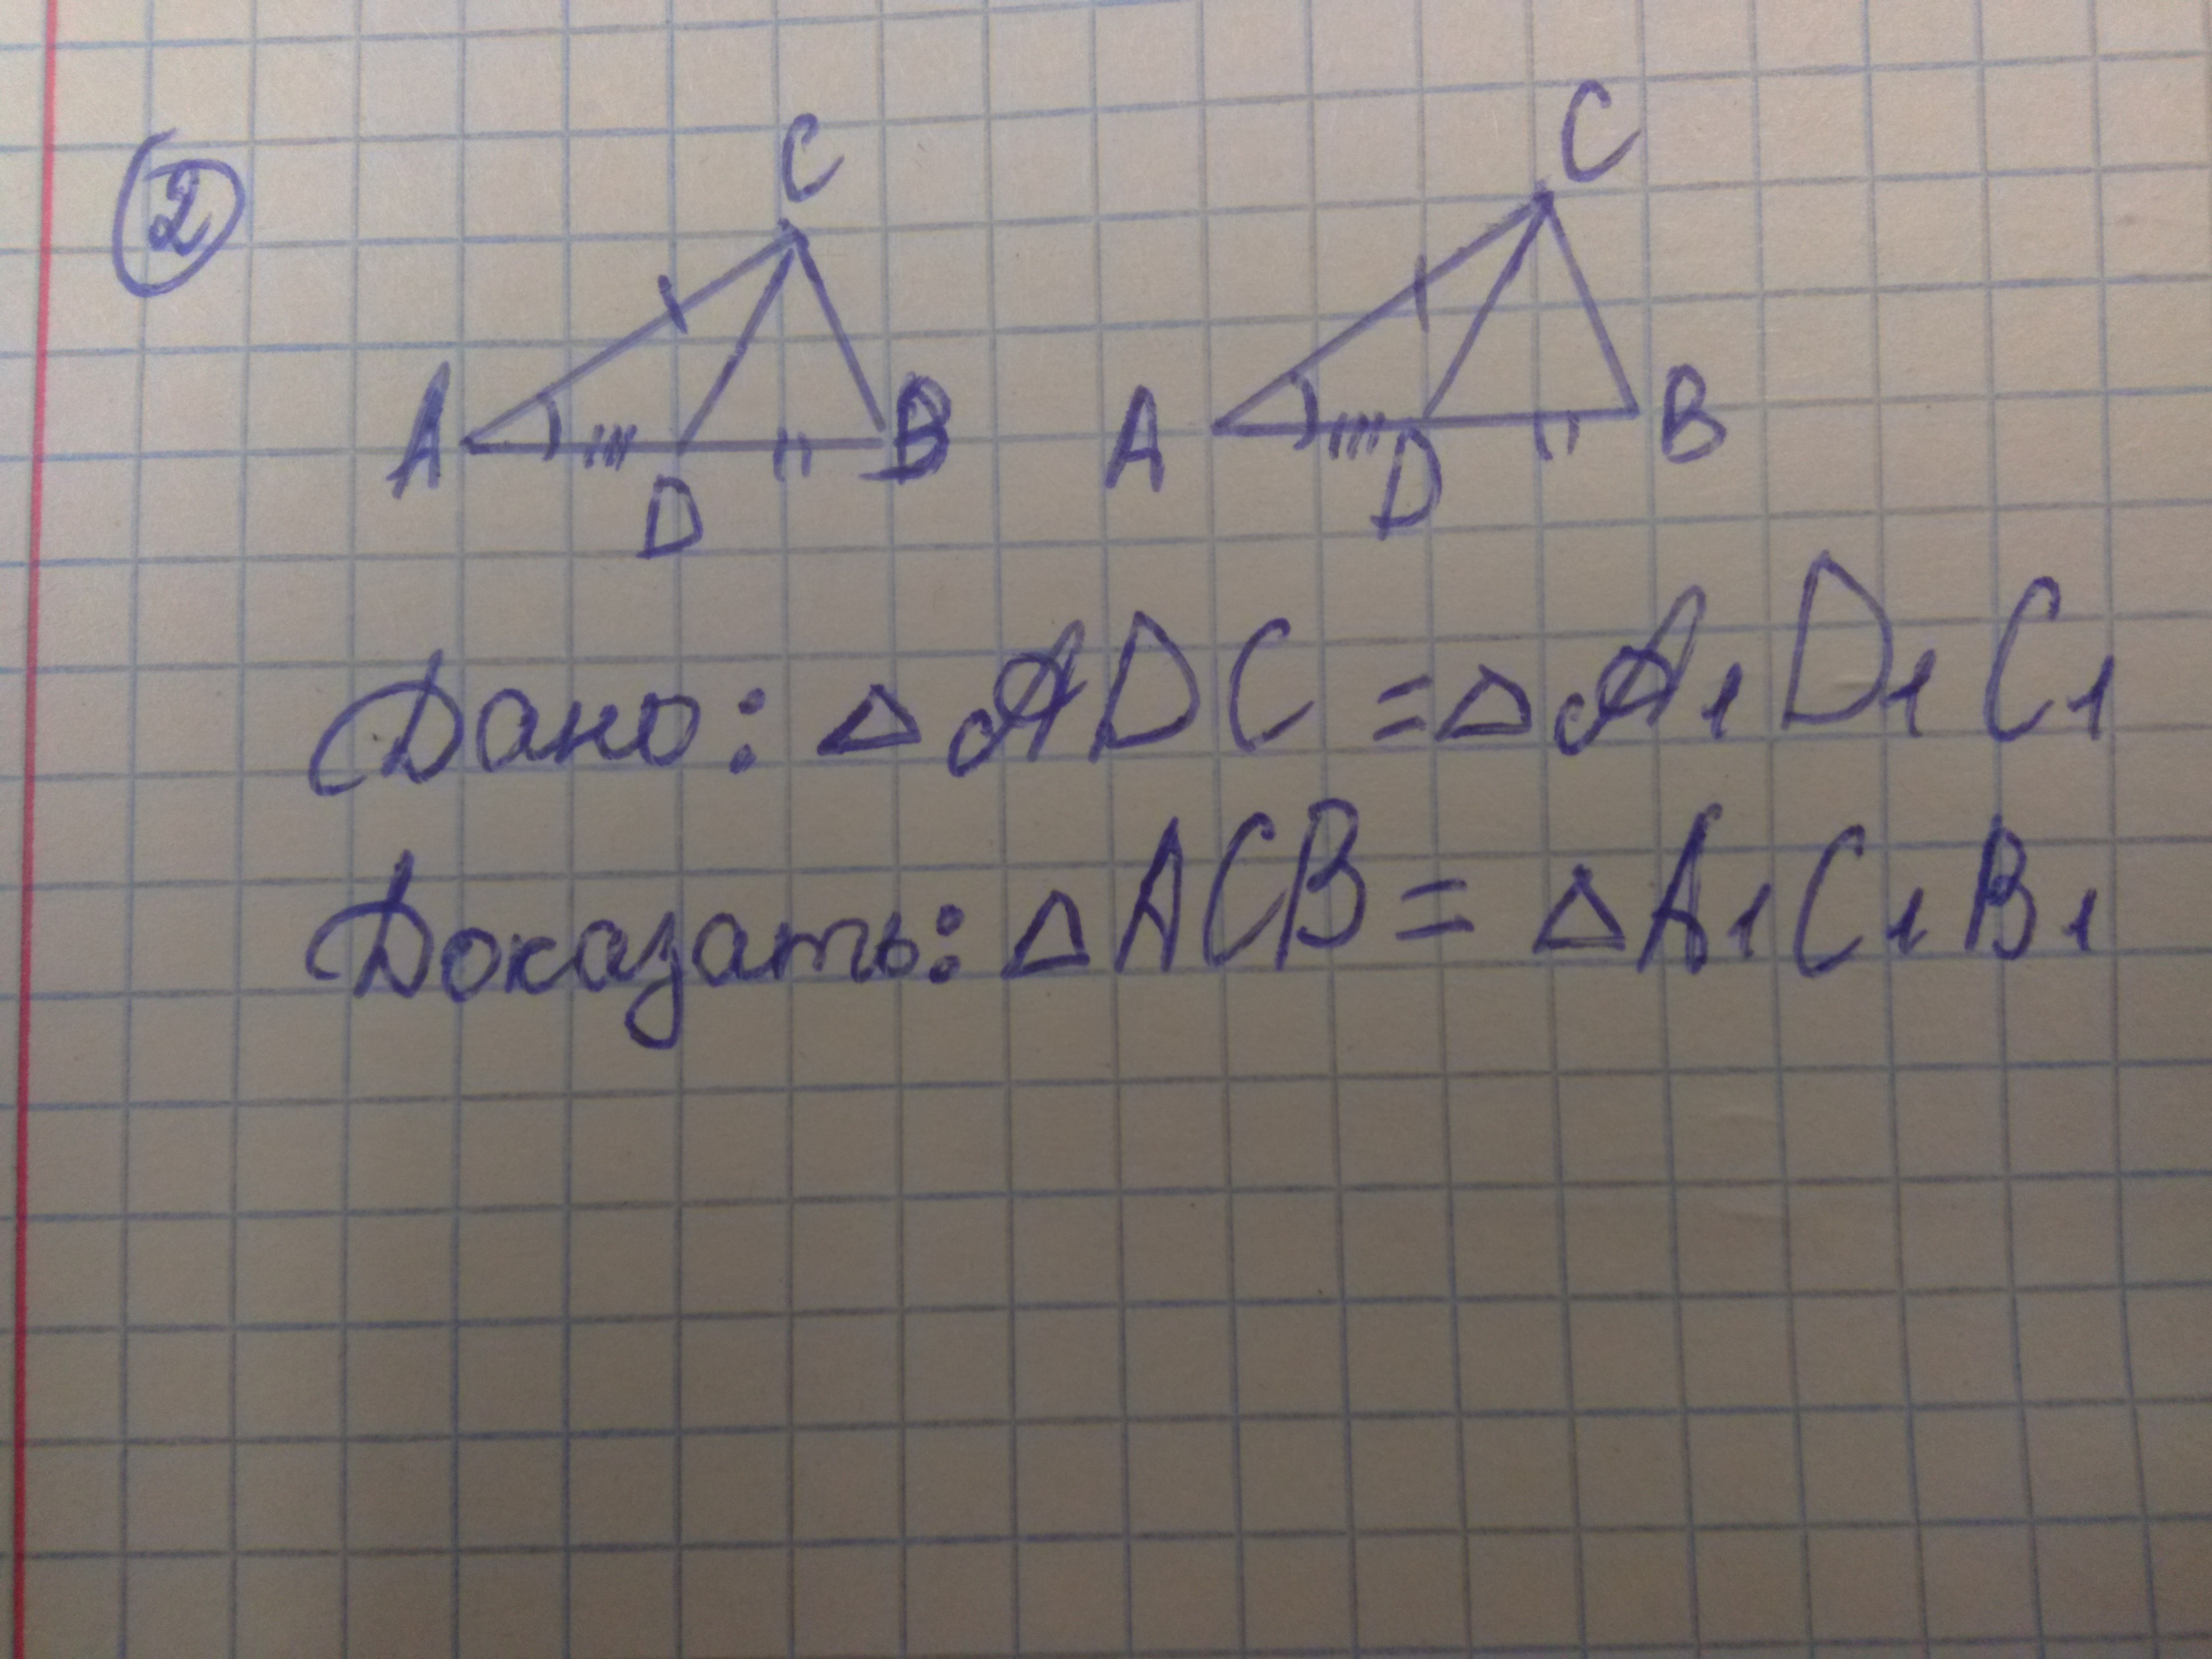 2
C C
A B A B
D D
Дано: △ ADC = △ A₁D₁C₁
Доказать: △ACB = △A₁C₁B₁